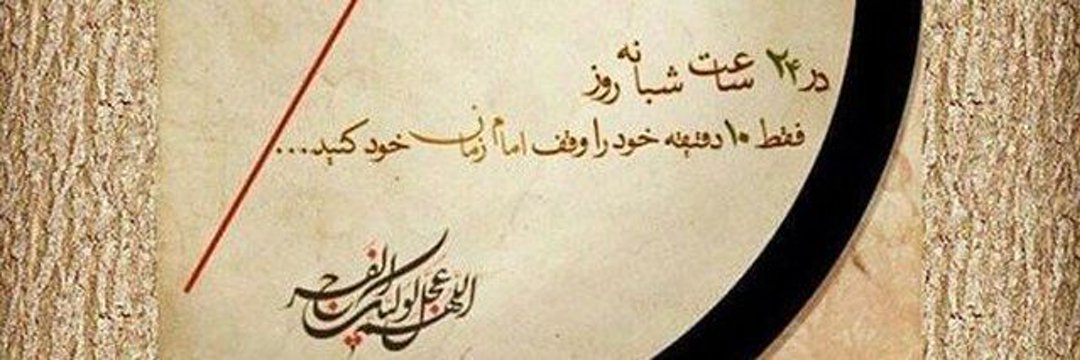 در ۲۴ ساعت شبانه روز
فقط ۱۰ دقیقه خود را وقف امام زمان خود کنید...
اللهم عجل لولیک الفرج